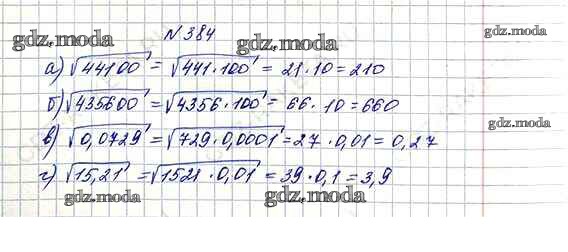 N 384
gdz.moda gdz.moda gdz.moda
а) √44100 = √441·100 = 21·10 = 210
б) √435600 = √4356·100 = 66·10 = 660
в) √0,0729 = √729·0,0001 = 27·0,01 = 0,27
gdz.moda
г) √15,21 = √1521·0,01 = 39·0,1 = 3,9
gdz.moda gdz.moda